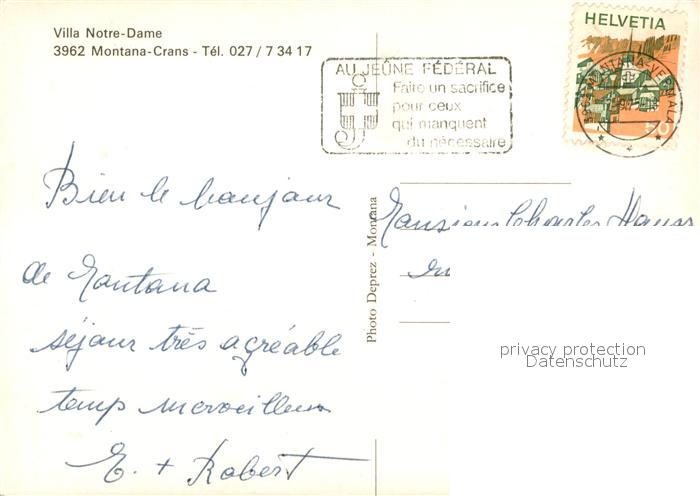 Villa Notre-Dame
3962 Montana-Crans - Tél. 027 / 7 34 17
AU JEÛNE FÉDÉRAL
Faire un sacrifice
pour ceux
qui manquent
du nécessaire
HELVETIA
MONTANA-VERMALA
50
Bien le bonjour
de Montana
séjour très agréable
temps merveilleux
E. + Robert
Photo Deprez - Montana
Monsieur Charles
privacy protection
Datenschutz